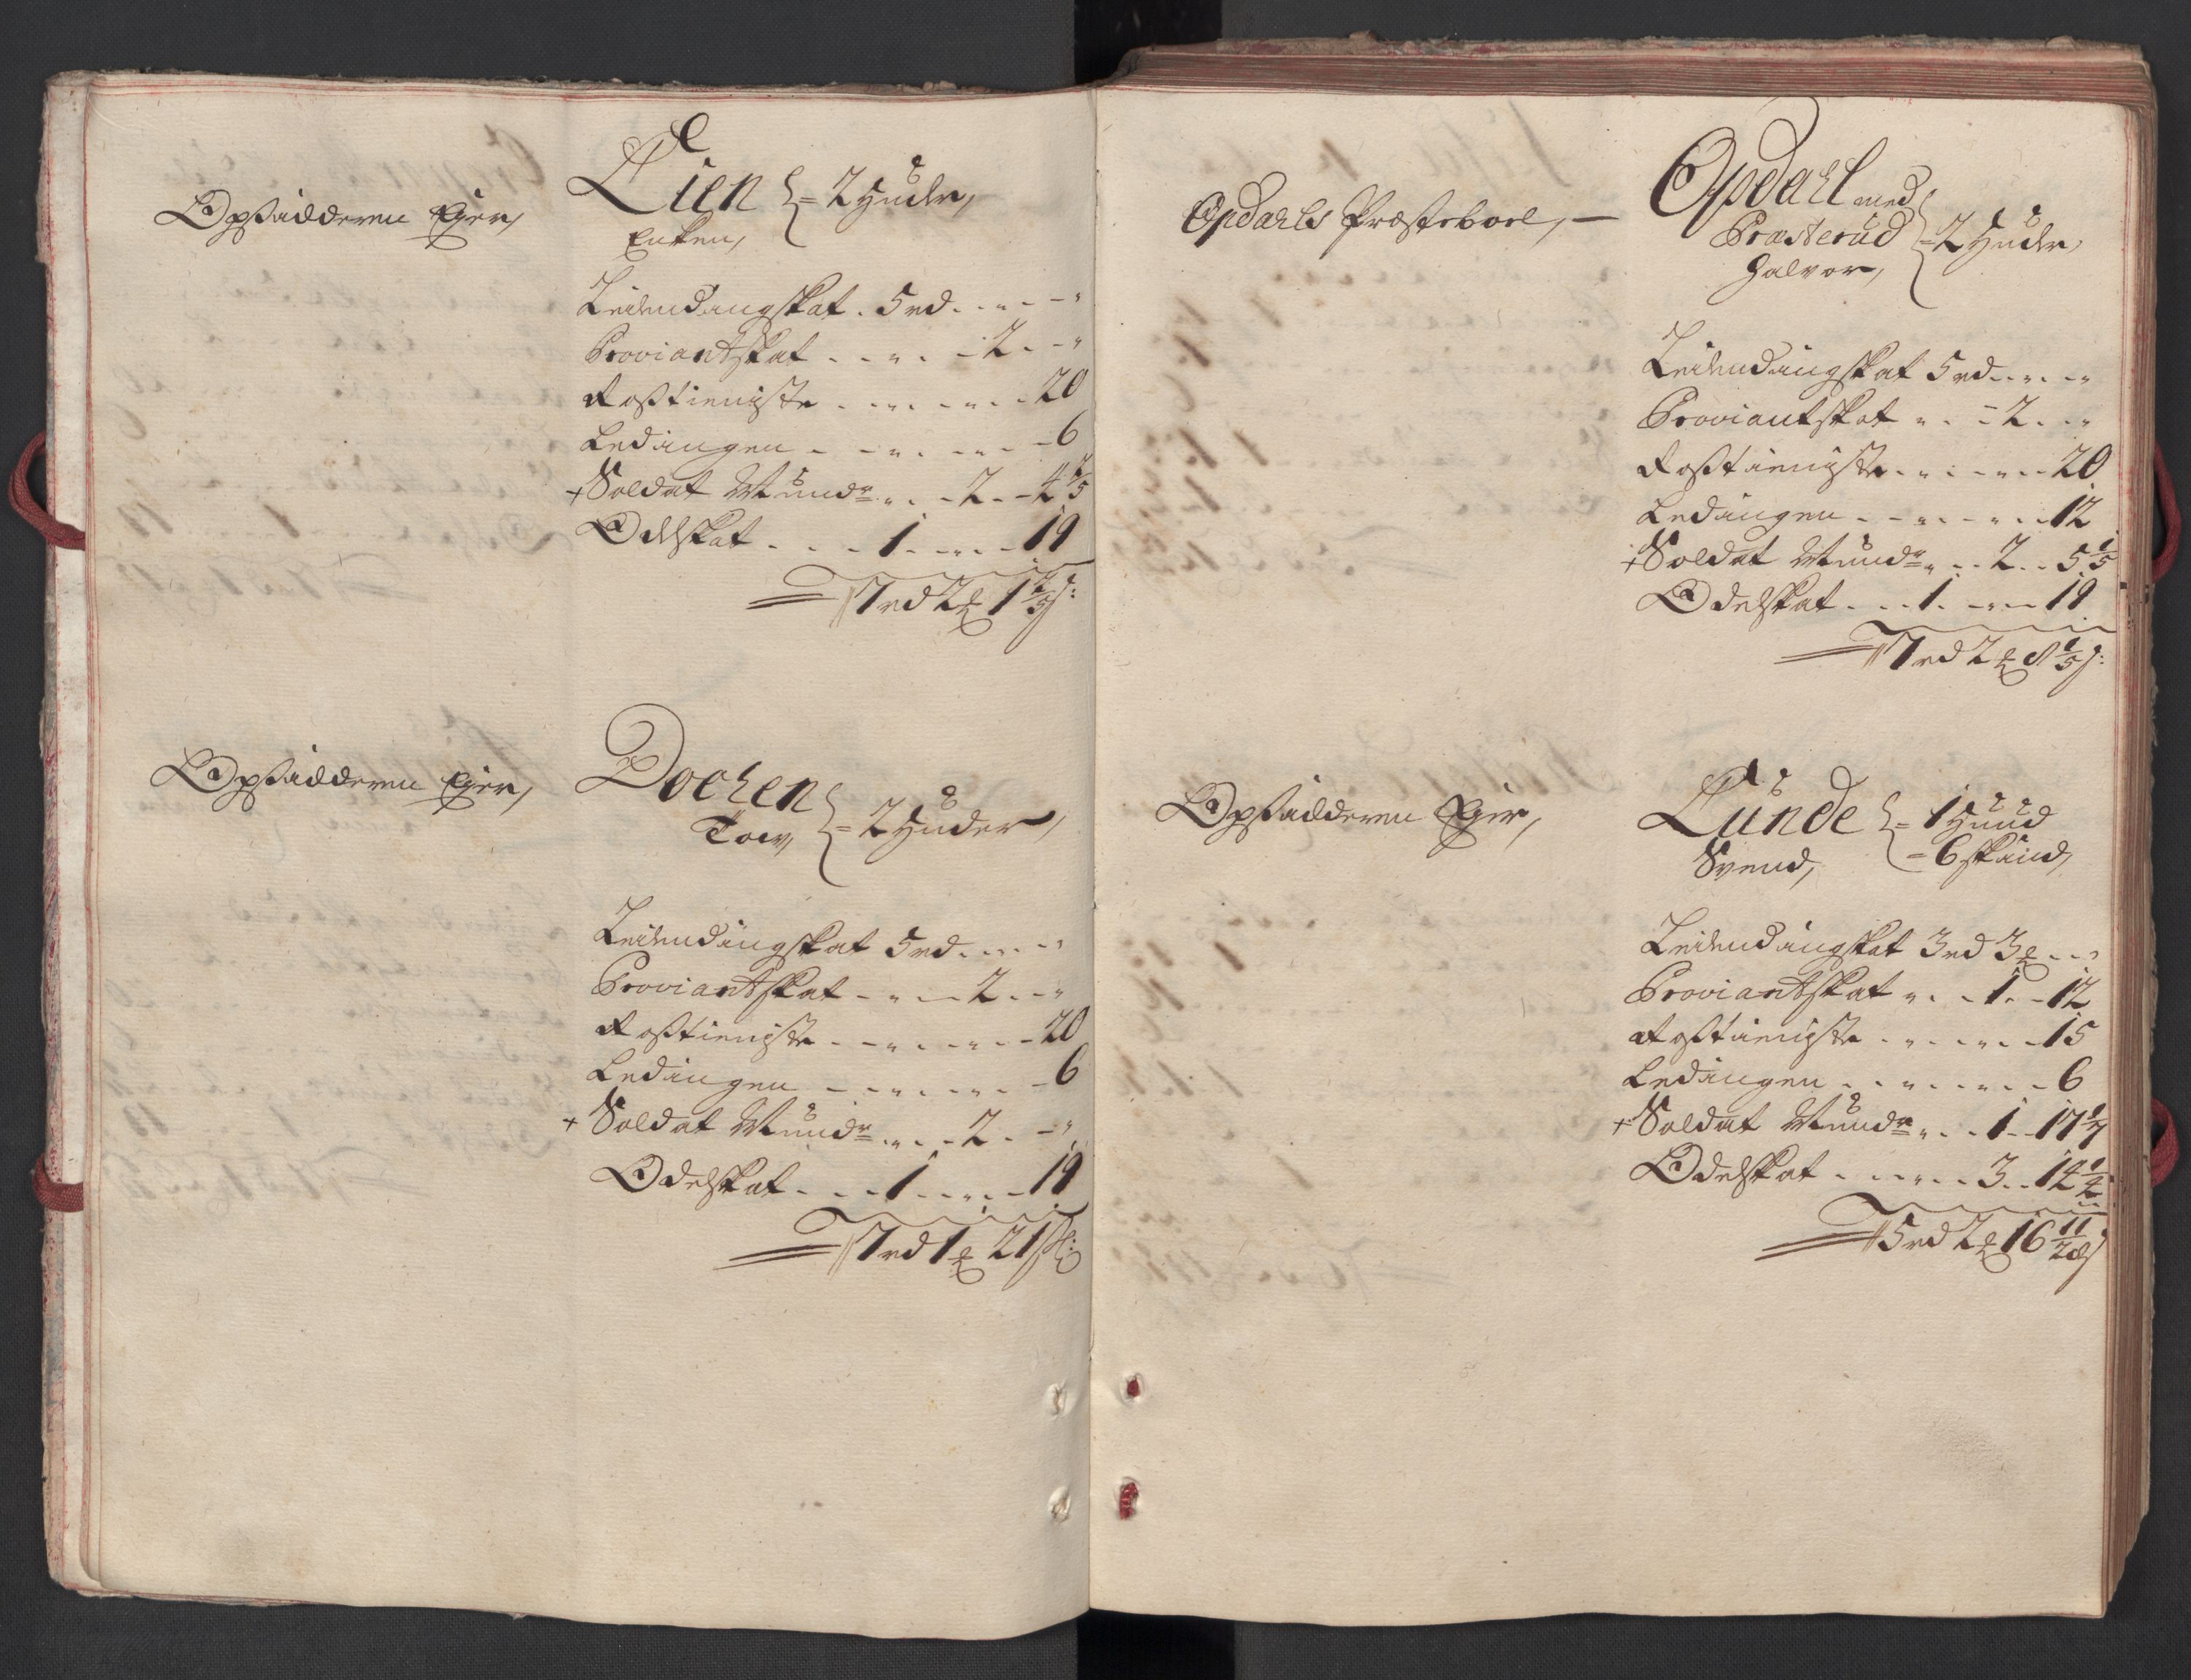 Opsidderen Ejer,
Lien = 2 Huder,
Enken,
Leilendingskat . 5 rd . . . - "
Proviantskat . . . . - 2 . - "
Rostieniste . . . . . . 20
Ledingen - . - . . . - 6
+ Soldat Mundr . . - 2 . - 4 4/5
Odelskat . . . 1 . . . . 19
7 rd 2 1
Opsidderen Ejer,
Dochen
Tov, = 2 Huder,
Leilendingskat 5 rd . . . - "
Proviantskat - . . - 2 . - "
Rostieniste . - . . . . - 20
Ledingen - . - . . . - 6
+ Soldat Mundr . . . - 2 . - "
Odelskat . . . 1 . . . . 19
7 rd 1 21 sk:
Opdahls Præsteboel, —
Opdahl med
Præsterud = 2 Huder,
Halvor,
Leilendingskat 5 rd . . . . "
Proviantskat . . - 2 . . "
Rostieniste . . . . . . 20
Ledingen - - . . . . . 12
+ Soldat Mundr . . . 2 . . 5 1/5
Odelskat . . . 1 . . . . 19
7 rd 2 8 1/5 s:
Opsidderen Ejer,
Lunde = 1 Huud
Svend, = 6 skind,
Leilendingskat 3 rd 3 . . . "
Proviantskat . . . 1 . - 12
Rostieniste . . . . . . 15
Ledingen . . . . . . - 6
+ Soldat Mundr . . . 1 . - 17
Odelskat . . . . . . 3 . . 14
5 rd 2 16 11/28 s